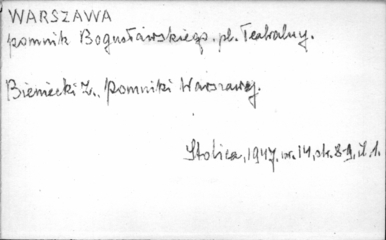 WARSZAWA
pomnik Bogusławskiego. pl. Teatralny.
Bieniecki Z., Pomniki Warszawy.
Stolica, 1947. nr. 14, str. 8-9, il. 1.